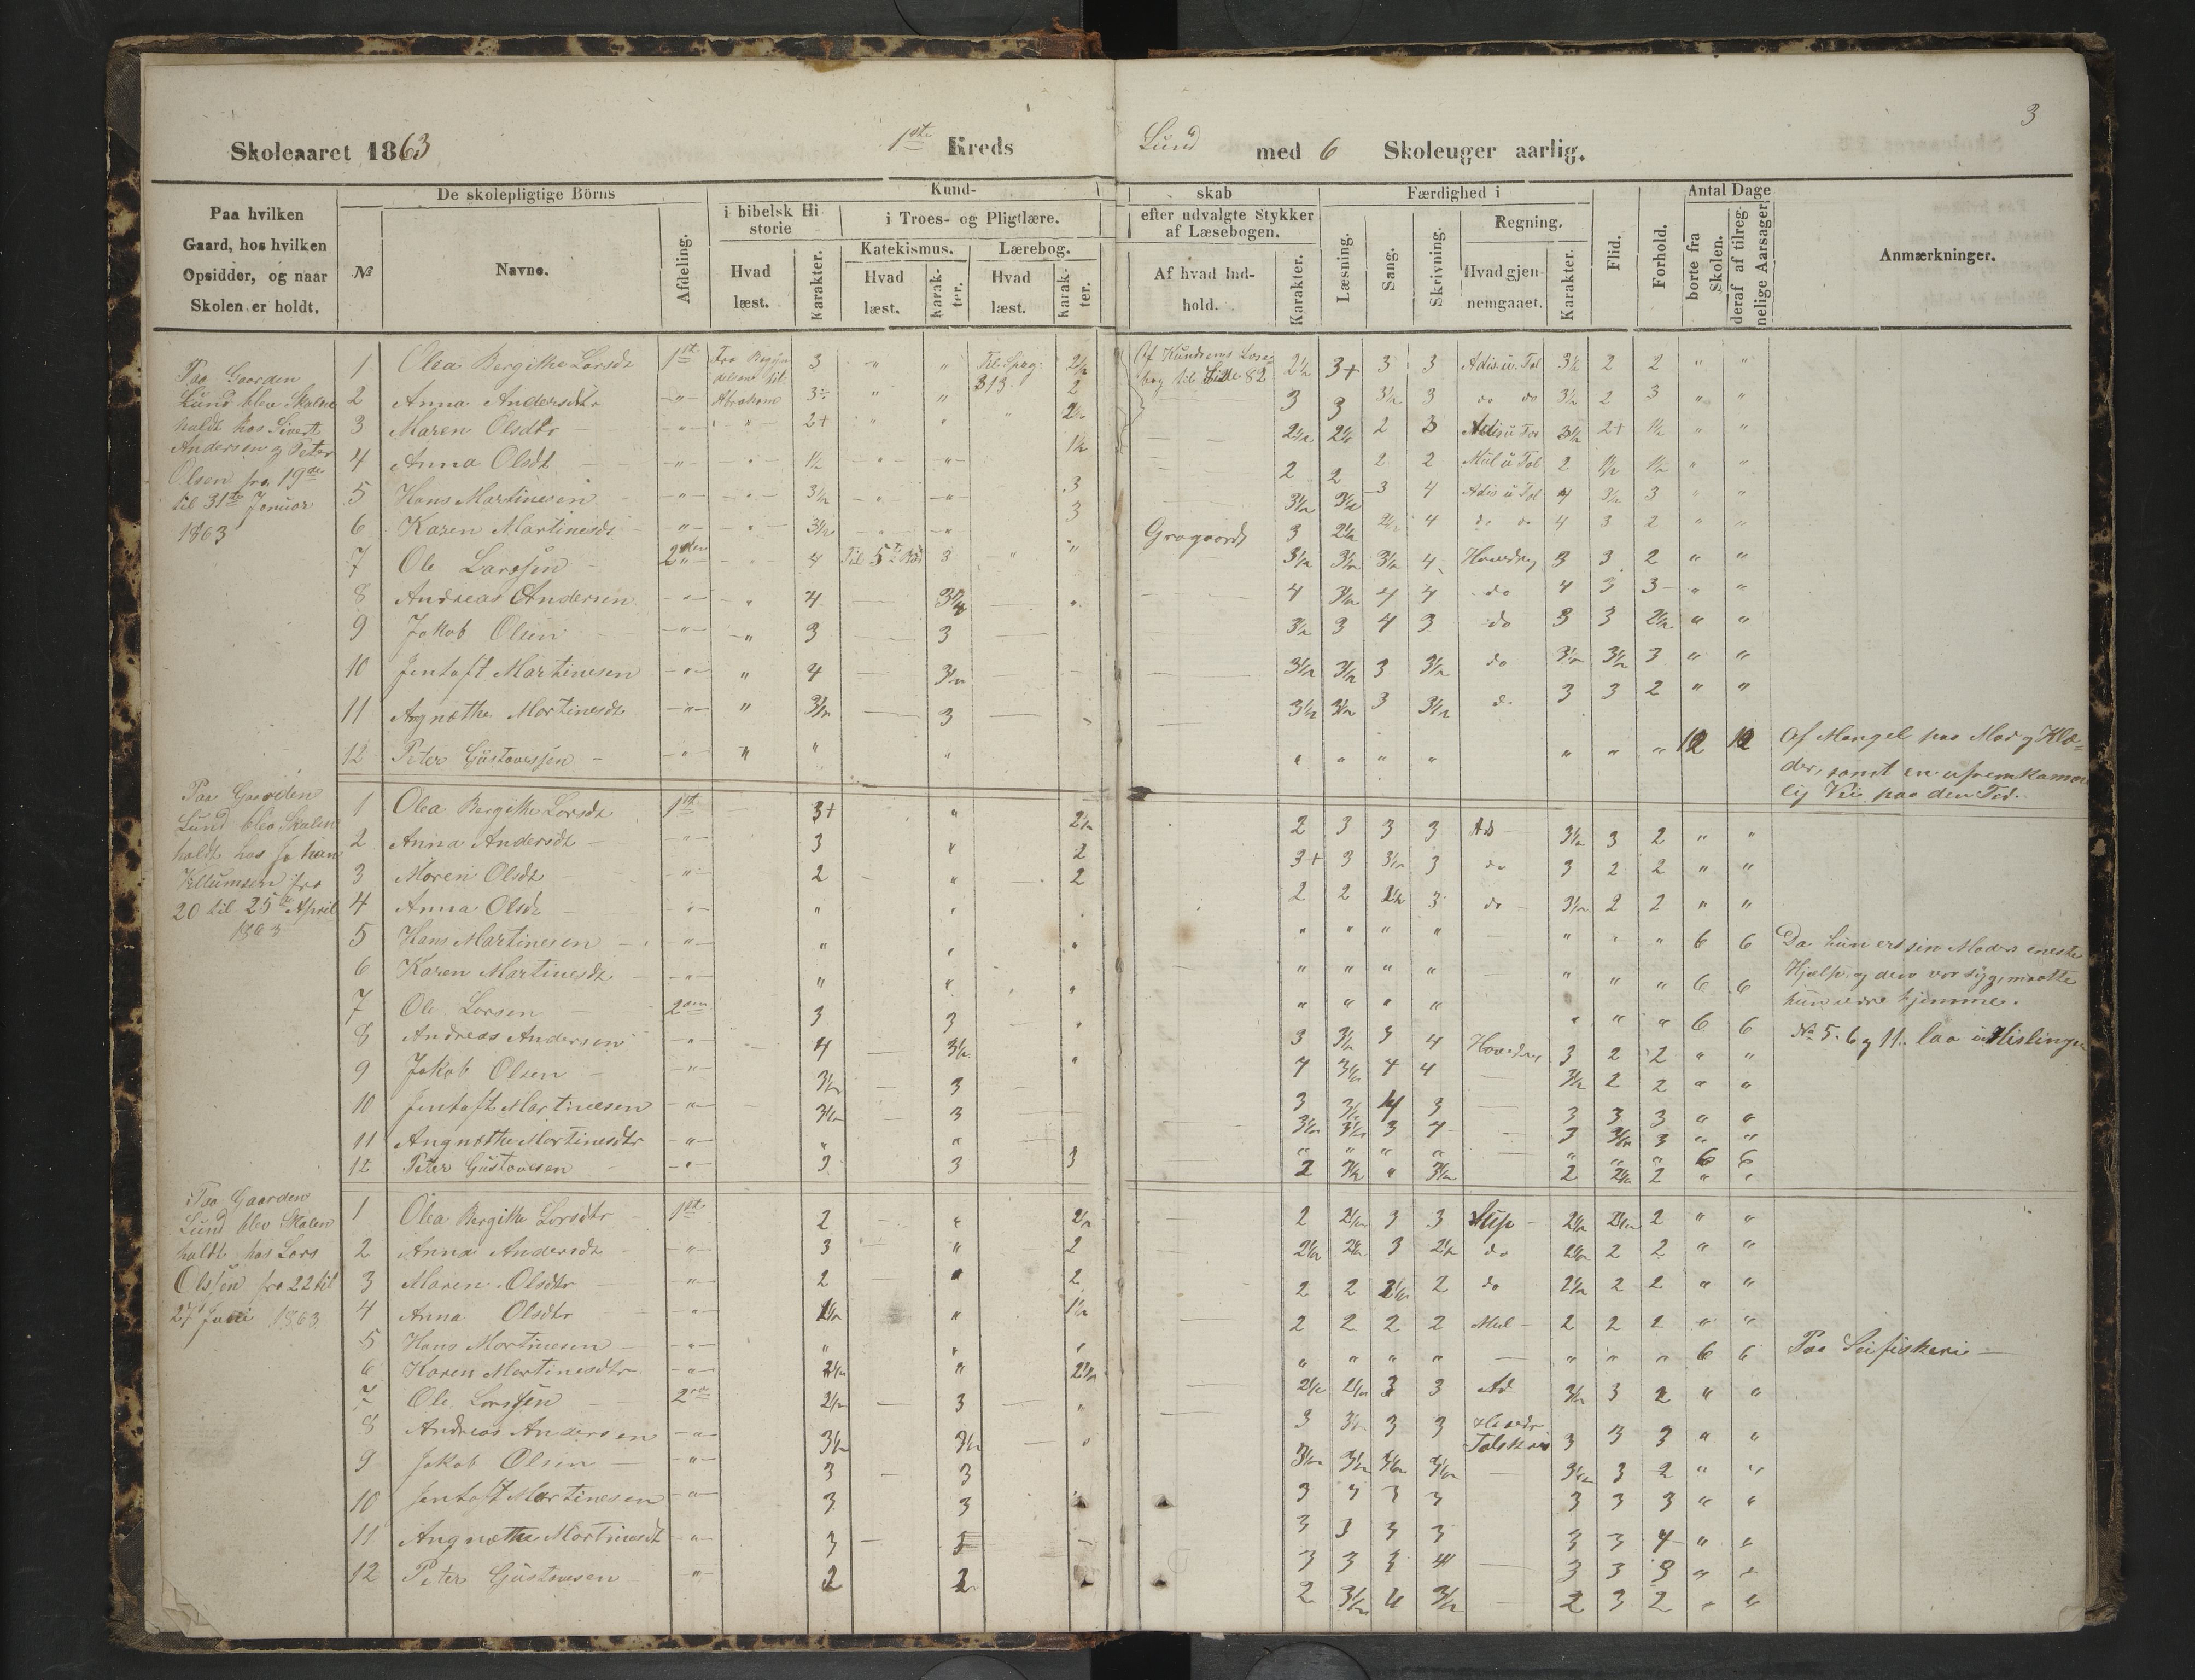 3
Skoleaaret 1863 1ste Kreds Lund med 6 Skoleuger aarlig.
Paa hvilken Gaard, hos hvilken Opsidder, og naar Skolen er holdt.
De skolepligtige Börns
№ Navne. Afdeling.
Kundskab
i bibelsk Historie
Hvad læst. Karakter.
i Troes- og Pligtlære.
Katekismus. Lærebog.
Hvad læst. Karakter. Hvad læst. Karakter.
efter udvalgte Stykker af Læsebogen.
Af hvad Indhold. Karakter.
Færdighed i
Læsning. Sang. Skrivning. Regning.
Hvad gjennemgaaet. Karakter.
Flid. Forhold.
Antal Dage
borte fra Skolen. deraf af tilregnelige Aarsager.
Anmærkninger.
Paa Gaarden
Lund blev Skolen
holdt hos Sivert
Andersen og Peter
Olsen fra 19de
til 31te Januar
1863
1 Olea Bergithe Larsdt 1ste Fra Begyndelsen til Abraham 3 " " Til Spøg: 313. 2½ Af Kundrens Læsebog til Side 82 2½ 3+ 3 3 Adis. u. Tal 3½ 2 2 " "
2 Anna Andersdtr " 3÷ " " 2 3 3 3½ 3 do do 3½ 2 3 " "
3 Maren Olsdtr " " 2+ " " " 2½ 2½ 2½ 2 3 Adis u Tal 3½ 2+ 1½ " "
4 Anna Olsdt " " 1½ " " 1½ 2 2 2 2 Mul u Tal 2 1½ 1½ " "
5 Hans Martinesen " " 3½ " " 3 3½ 3½ 3 4 Adis u Tal 4 3½ 3 " "
6 Karen Martinesdt " " 3½ " " 3 3 2½ 2½ 4 do do 4 3 2 " "
7 Ole Larssen 2den " 4 Til 5te 3 " " 3½ 3½ 3½ 4 Hovedreg 3 3 2 " "
8 Andreas Andersen " " 4 3½ " 4 3½ 4 4 do 4 3 3 " "
9 Jakob Olsen " " 3 3 3½ 3 4 3 do 3 3 2½ " "
10 Jentoft Martinesen " " 4 3½ 3½ 3½ 3 3½ do 3½ 3½ 3 " "
11 Agnæthe Martinesdt " " 3½ 3 3½ 3½ 3 3½ do 3 3 2 " "
12 Peter Gustavesen " " " " " " " " " " " 12 12 Af Mangel paa Mad og Klæder, samt en ufremkommelig Vei paa den Tid.
Paa Gaarden
Lund blev Skolen
holdt hos Johan
Villumsen fra
20 til 25de April
1863
1 Olea Bergithe Larsdt 1ste 3+ " 2½ 2 3 3 3 Ad 3½ 3 2 " "
2 Anna Andersdt " 3 " 2 3+ 3 3½ 3 do 3 2 2 " "
3 Maren Olsdt " 2 " 2 2 2 2½ 3 do 3½ 2 2 " "
4 Anna Olsdt " " " " " " " " " " 6 6 Da hun er sin Moders eneste
5 Hans Martinesen " " " " " " " " " " " 6 6 Hjælp og den var syg, maatte
6 Karen Martinesdt " " " " " " " " " " " 6 6 hun være hjemme.
7 Ole Larsen 2den 3 3 " 3 3½ 3 4 Hovedreg 3 2 2 " " No 5. 6 og 11. laa i Mislinger
8 Andreas Andersen " 4 3½ " 4 3½ 4 4 3½ 2 2 " "
9 Jakob Olsen " 3½ 3 3 3½ 4 3 3 3 3 " "
10 Jentoft Martinesen " 3½ 3 3½ 3½ 3 4 3 3½ 3 " "
11 Angnæthe Martinesdtr " " " " " " " " " " 6 6
12 Peter Gustavesen " 3 3 3 2 3½ " 3½ 2 2½ 2 " "
Paa Gaarden
Lund blev Skolen
holdt hos Lars
Olssen fra 22 til
27 Juni 1863
1 Olea Bergithe Larsdtr 1ste 2 " 2½ 2 2½ 3 3 2½ 2½ 2 " "
2 Anna Andersdt " 3 " 2 2½ 2½ 3 2½ do 2½ 2 2 " "
3 Maren Olsdtr " 2 " 2 2 2 2½ 2 do 2½ 2 2 " "
4 Anna Olsdtr " 1½ " 1½ 2 2 2 2 Mul 2 2 2 " "
5 Hans Martinesen " " " " " " " " " " " 6 6 Paa Seifiskeri
6 Karen Martinesdtr " 2½ " 2½ 2½ 2½ 3 3 Ad 3½ 3 2 " "
7 Ole Larssen 2den 2½ 3 " 3 3½ 3 3 Hovedr Talskriv 3 3 3 " "
8 Andreas Andersen " 3½ 3½ " 3½ 3½ 3½ 3½ 3½ 3 2 " "
9 Jakob Olsen " 3 3 3 3 3 3 3 3 3 " "
10 Jentoft Martinesen " 3 3 3 3 3 3 3 3 4 " "
11 Angnæthe Martinesdt " 3 3 3 3 3 4 3 3 3 " "
12 Peter Gustavesen " 2 2 2 3½ 4 3½ 2 3 2 " "